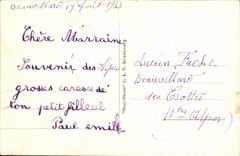 Beauvillard 17 Août 1943
Chère Marraine
Souvenir des Alpes
grosses caresses d'
ton petit filleul
Paul emile
Lucien Fache
Beauvillard
des Crottes
Htes Alpes